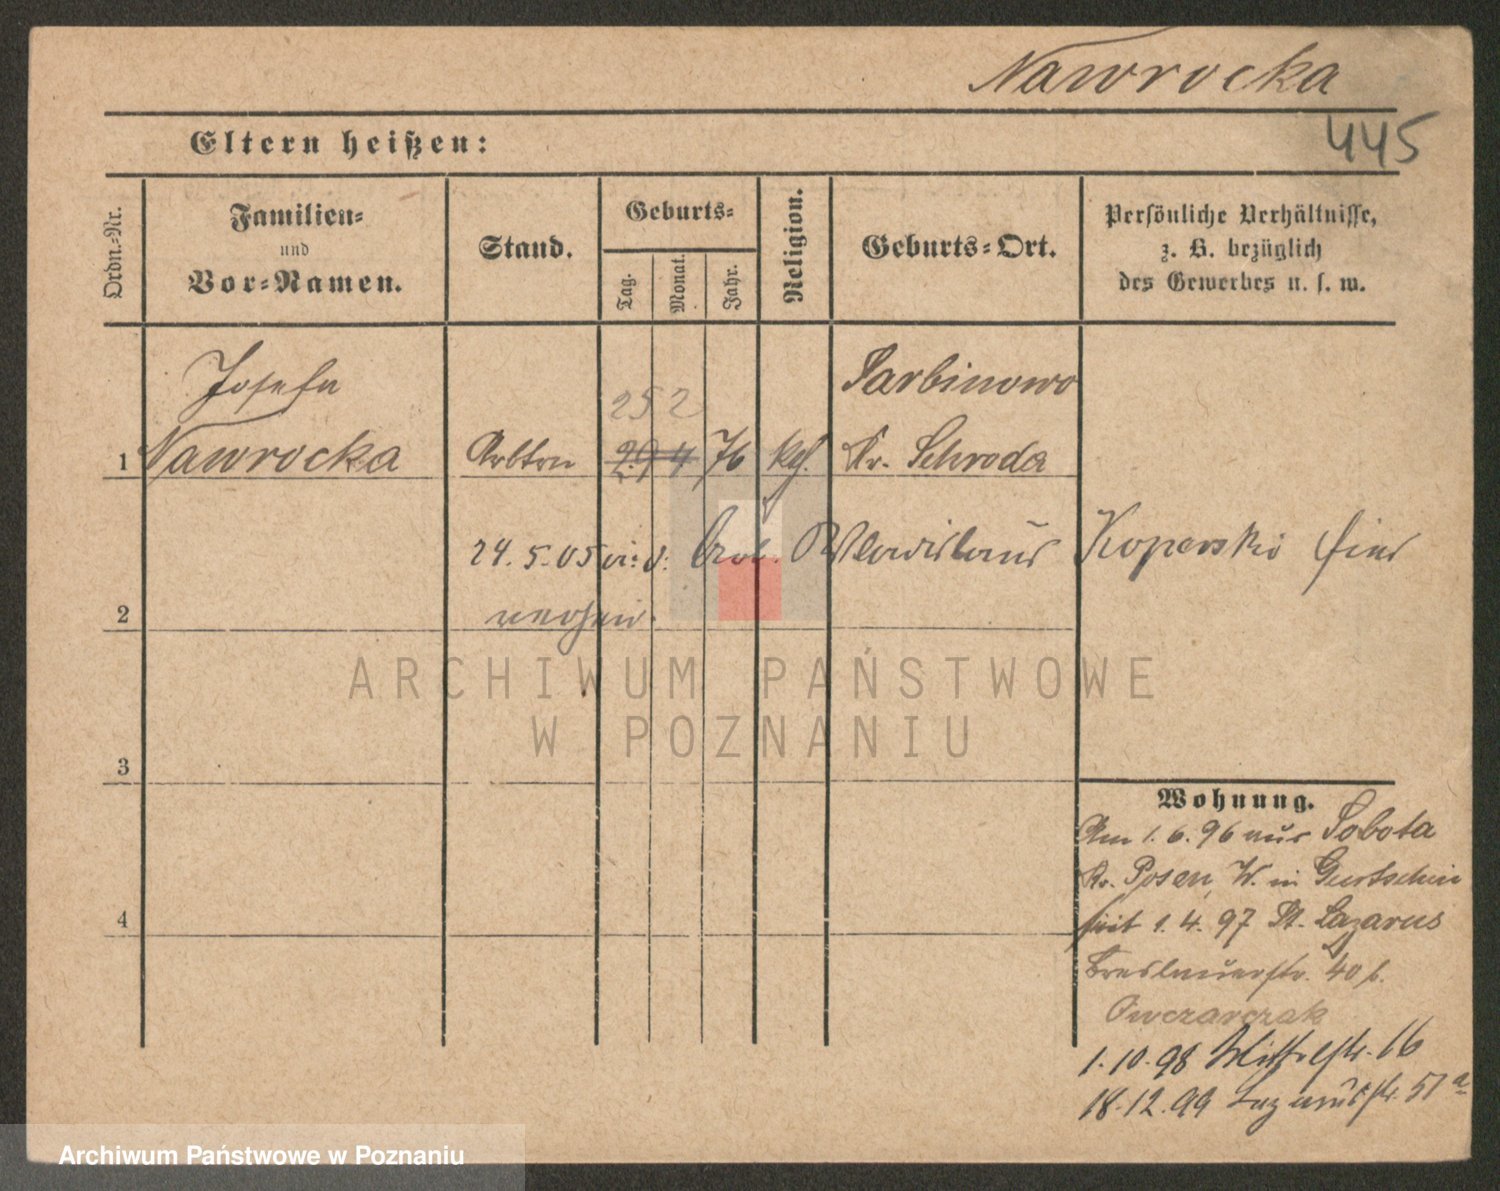 Nawrocka
445
Eltern heißen:
Ordn.-Nr.
Familien-
und
Vor-Namen.
Stand.
Geburts-
Tag.
Monat.
Jahr.
Religion.
Geburts-Ort.
Persönliche Verhältnisse,
z. B. bezüglich
des Gewerbes u. s. w.
Josefa
Sarbinowo
25 2
1 Nawrocka Arbtrn 29 4 76 kth. Kr. Schroda
24.5.05 Wladislaus Koperski
2
ARCHIWUM PAŃSTWOWE
W POZNANIU
3
Wohnung.
Am 1.6.96 aus Sobota
Kr. Posen, W. in Gurtschin
4
seit 1.4.97 St. Lazarus
Breslauerstr. 40 b.
Owczarczak
1.10.98 16
18.12.99 Lazarusstr. 51a
Archiwum Państwowe w Poznaniu